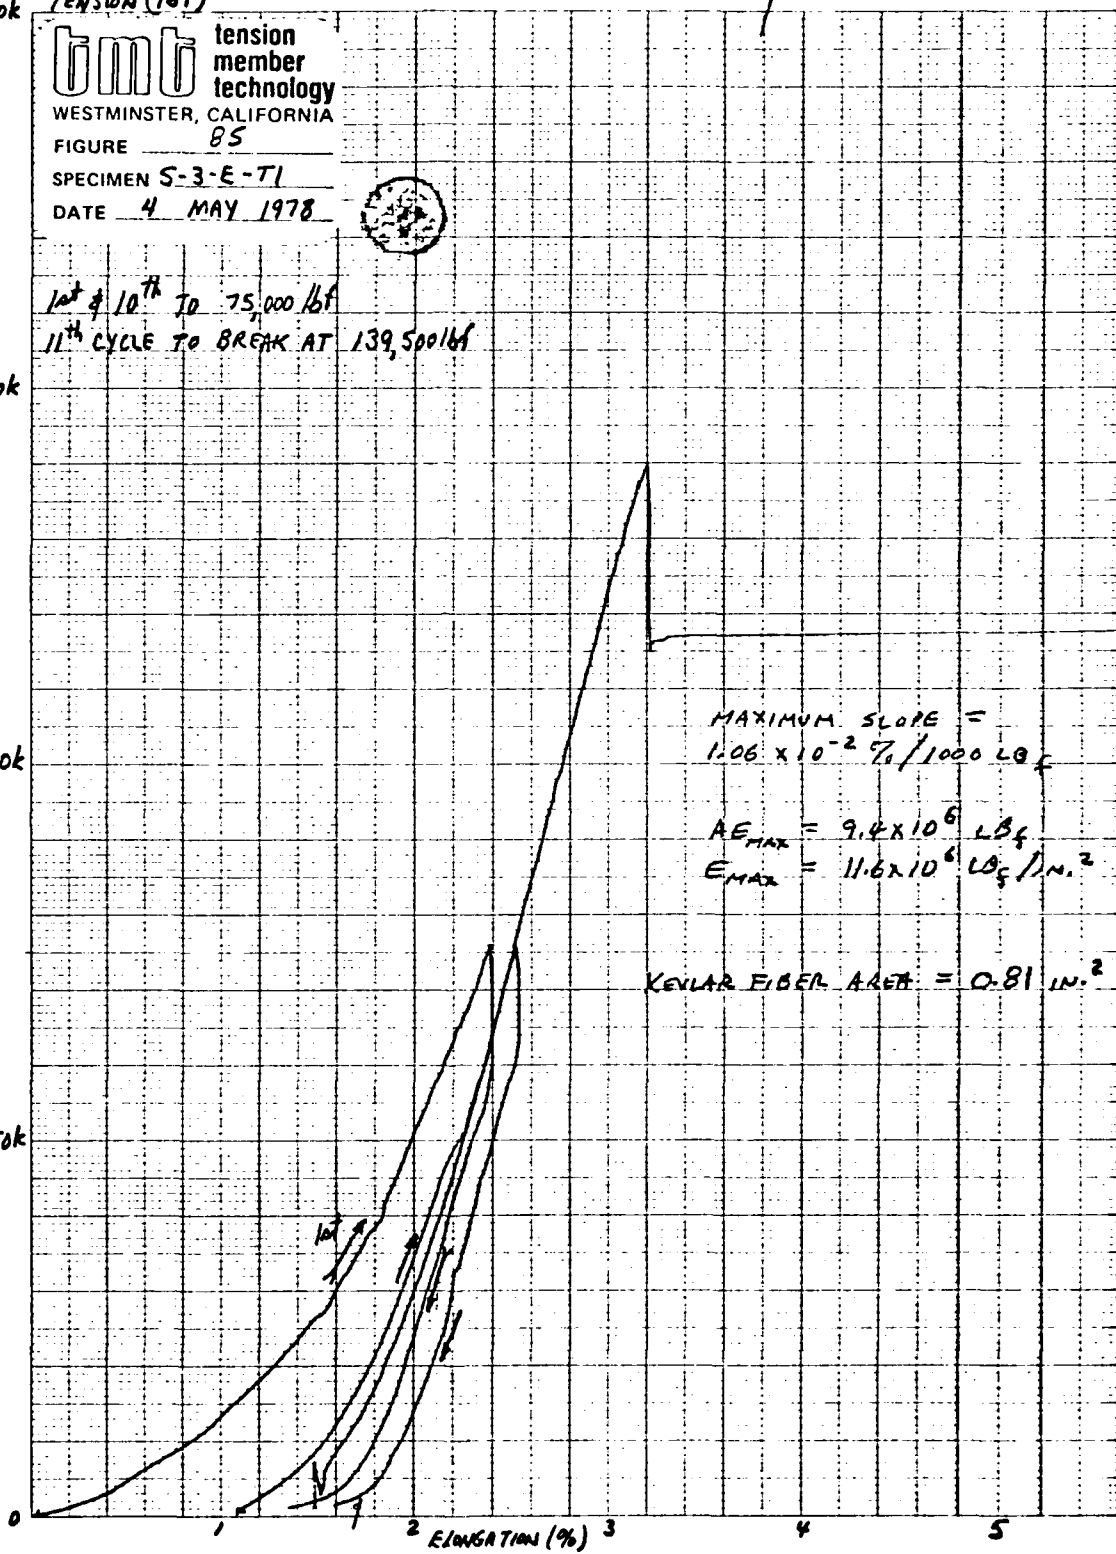 TENSION (lbf)
tmt tension
member
technology
WESTMINSTER, CALIFORNIA
FIGURE 85
SPECIMEN S-3-E-T1
DATE 4 MAY 1978
1st & 10th TO 75,000 lbf
11th CYCLE TO BREAK AT 139,500 lbf
MAXIMUM SLOPE =
1.06 x 10⁻² %/1000 LBf
AE MAX = 9.4x10⁶ LBf
E MAX = 11.6x10⁶ LBf/IN.²
KEVLAR FIBER AREA = 0.81 IN.²
1st
0
1 2 3 4 5
ELONGATION (%)